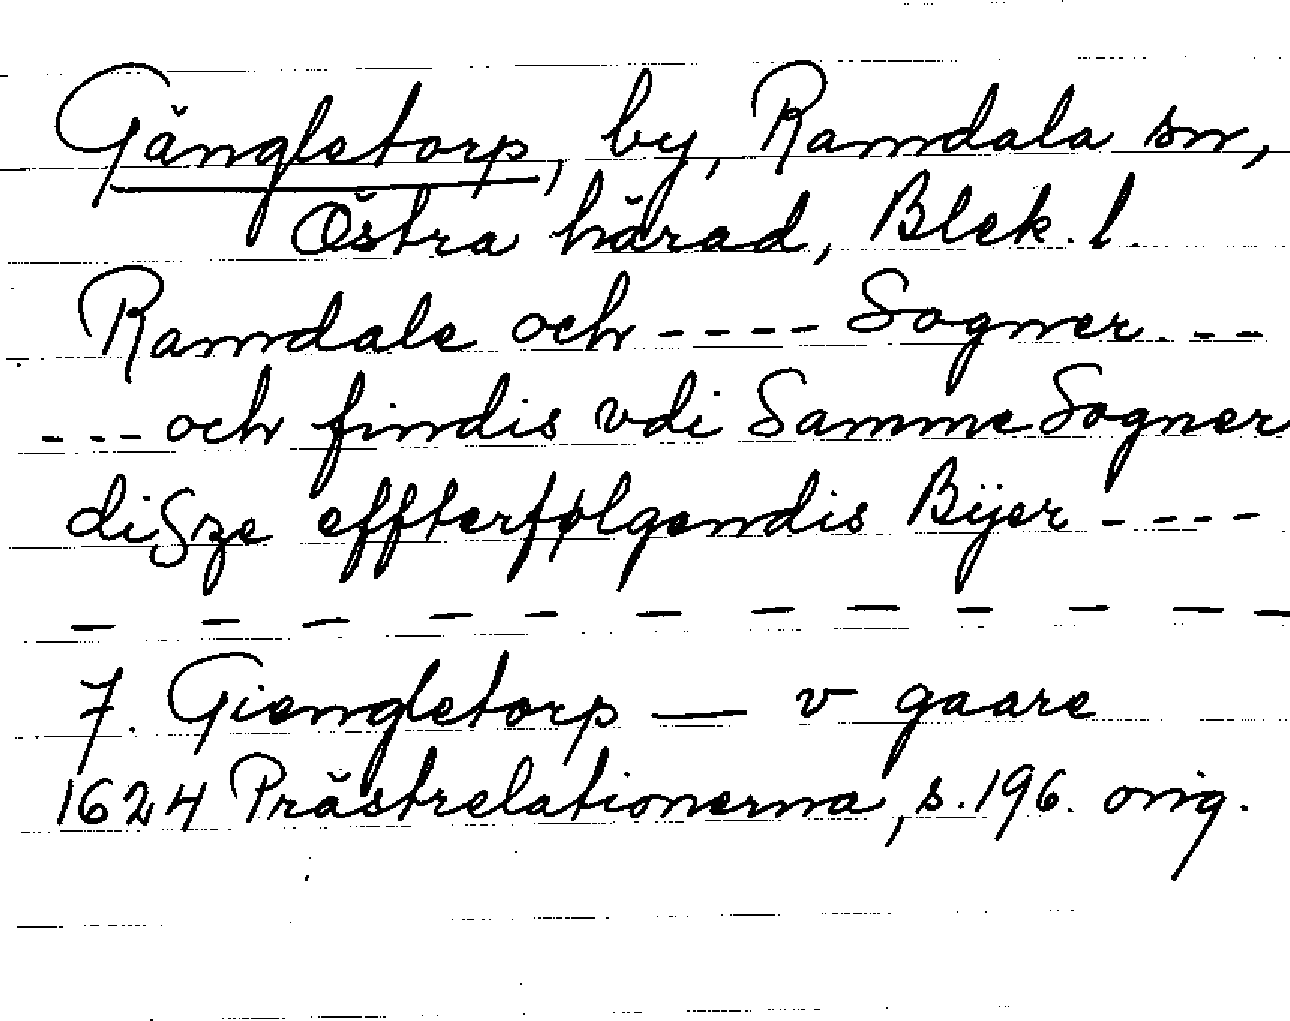 Gängletorp, by, Ramdala sn,
Östra härad, Blek. l.
Ramdale och - - - - Sogner. - -
- - - och findis vdi Samme Sogner
diSze effterfølgendis Bÿer - - - -
- - - - - - - - - - - -
7. Giengletorp — v gaare
1624 Prästrelationerna, s. 196. orig.